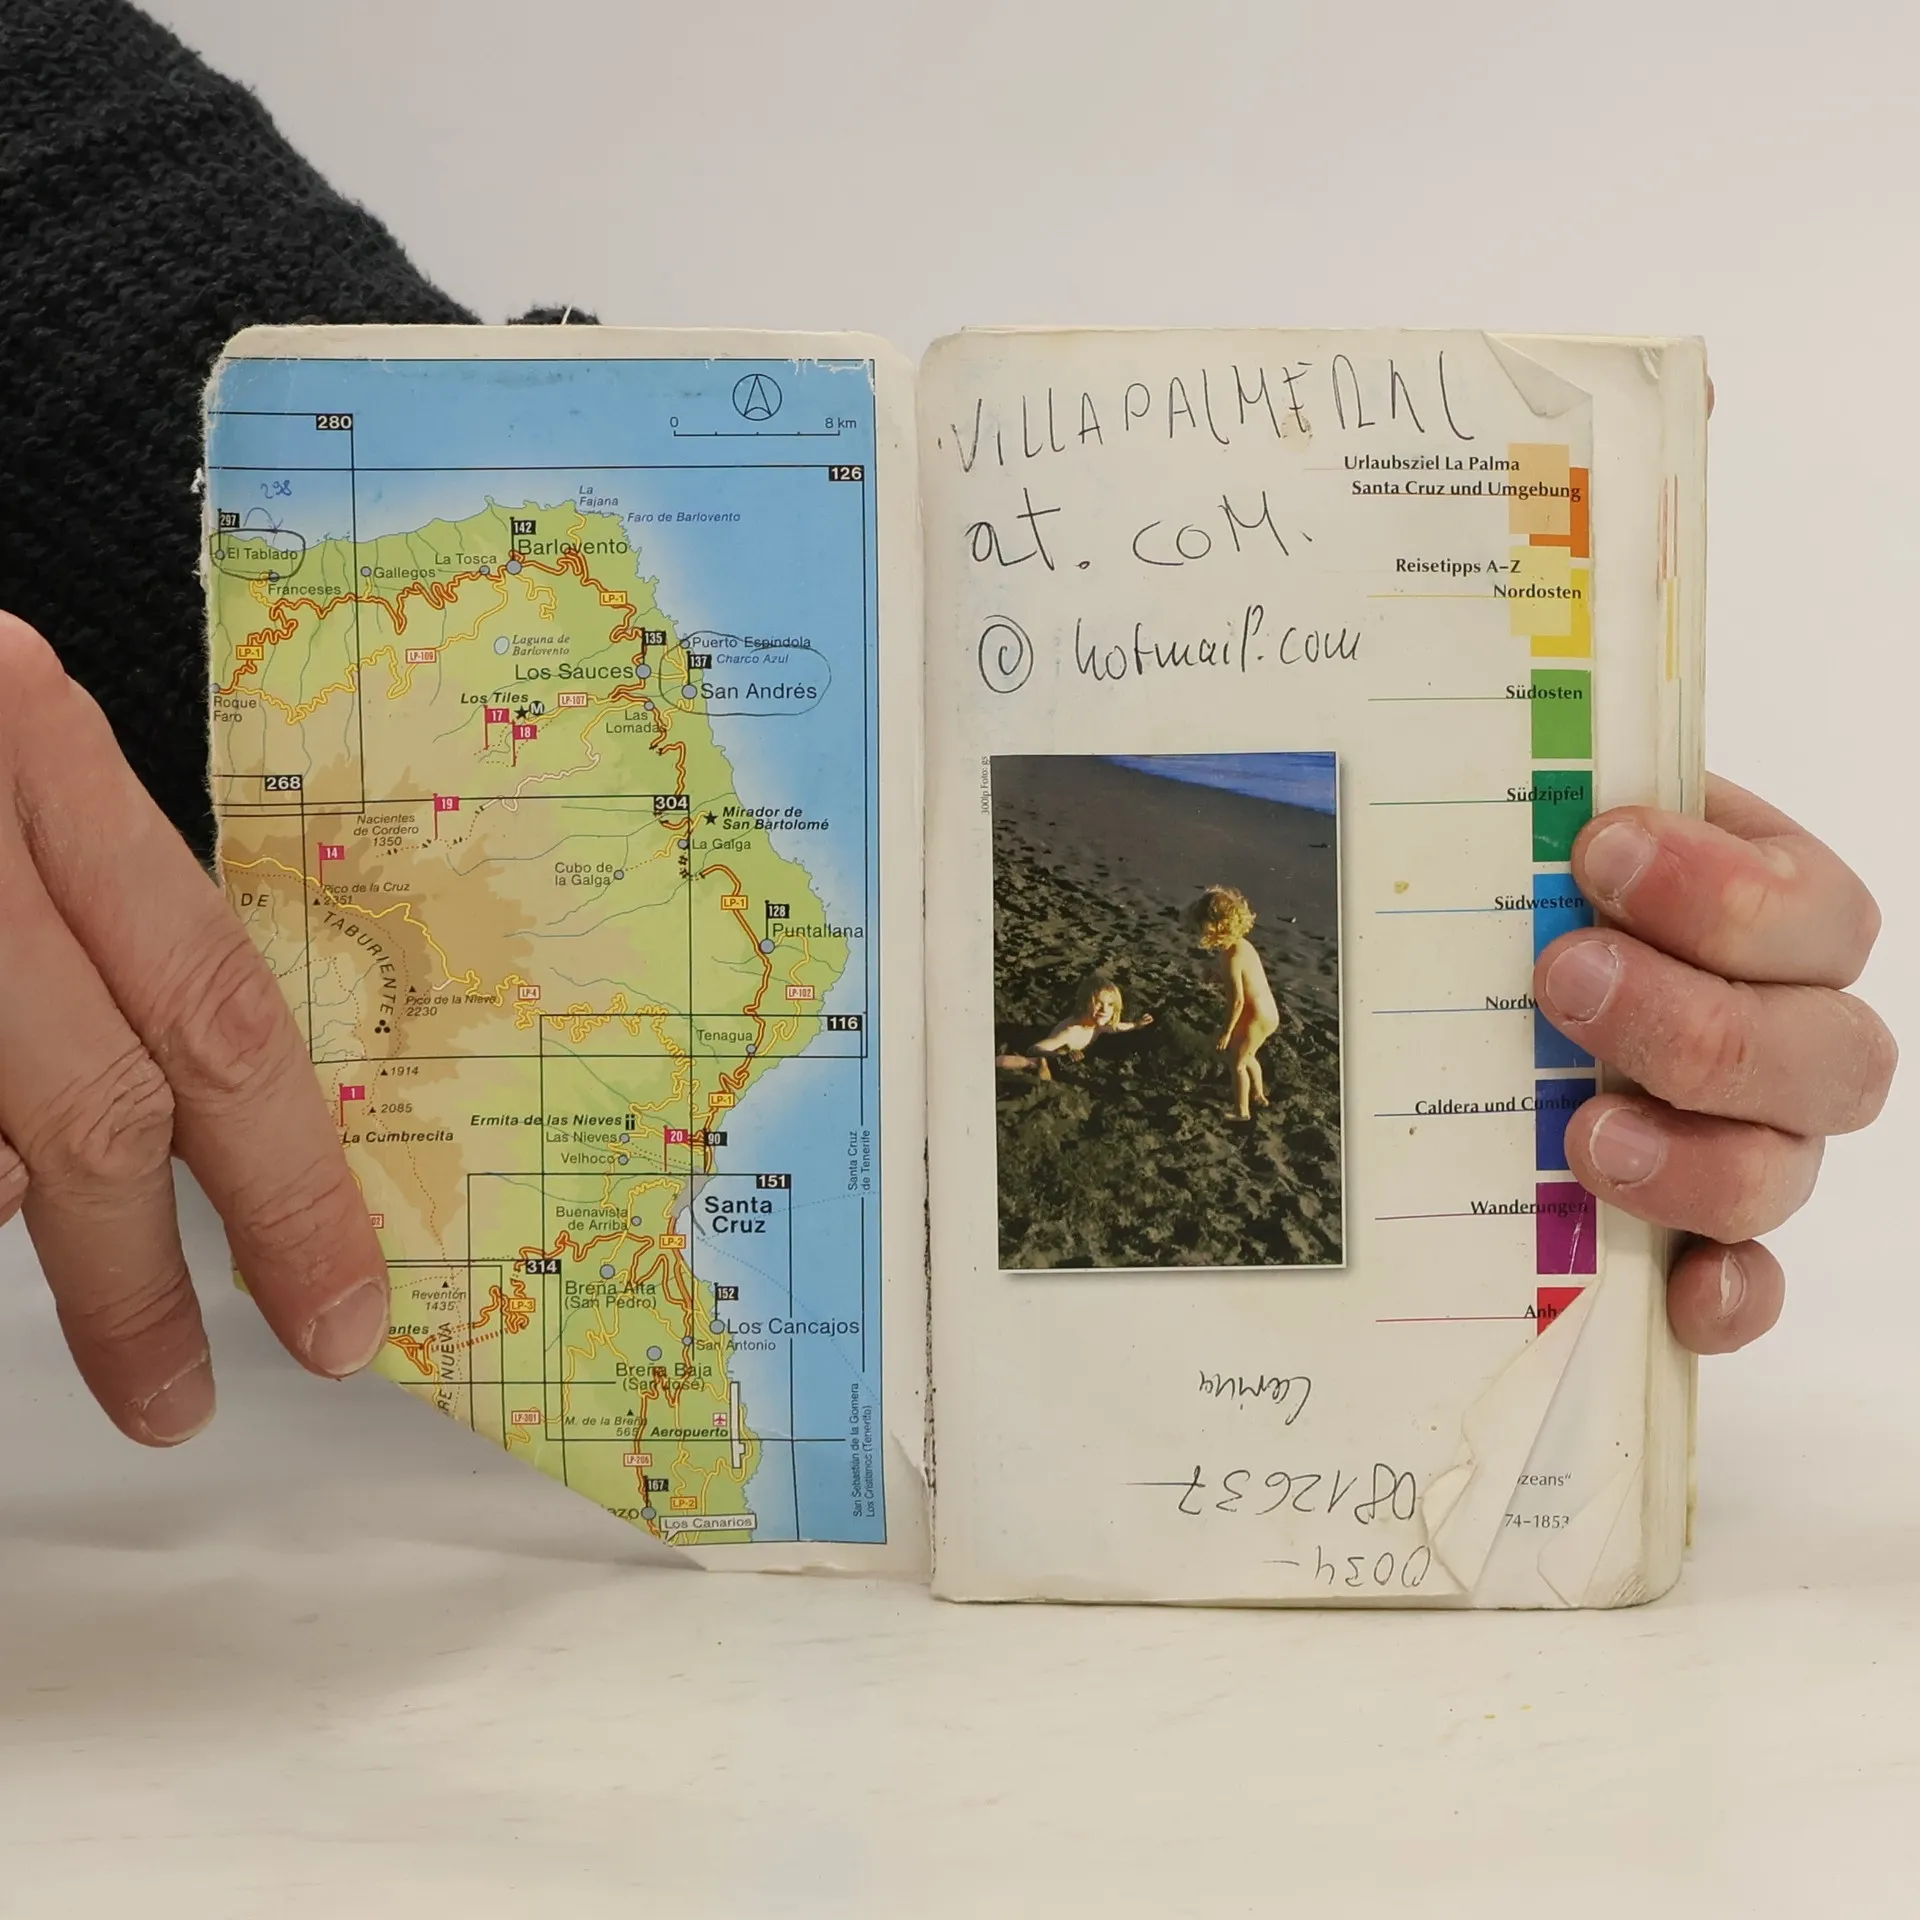 280
0 8 km
126
298
297
El Tablado
Franceses
Gallegos
La Tosca
142
Barlovento
La
Fajana
Faro de Barlovento
LP-1
LP-1
LP-109
Laguna de
Barlovento
135
Puerto Espindola
137 Charco Azul
Los Sauces
San Andrés
Roque
Faro
Los Tiles
M
17
18
LP-107
Las
Lomadas
268
19
304
Nacientes
de Cordero
1350
Mirador de
San Bartolomé
La Galga
14
Cubo de
la Galga
Pico de la Cruz
2351
DE
TABURIENTE
LP-1
128
Puntallana
Pico de la Nieve
2230
LP-4
LP-102
116
Tenagua
1914
1
2085
La Cumbrecita
LP-1
Ermita de las Nieves
Las Nieves
20
90
Velhoco
Santa Cruz
de Tenerife
151
Santa
Cruz
Buenavista
de Arriba
LP-2
314
Reventón
1435
LP-3
Breña Alta
(San Pedro)
152
Los Cancajos
San Antonio
antes
RE NUEVA
Breña Baja
(San José)
LP-301
M. de la Breña
565
Aeropuerto
San Sebastián de la Gomera
Los Cristianos (Tenerife)
LP-206
167
LP-2
azo
Los Canarios
VILLAPALMERAL
at. COM.
@ hotmail.com
300lp Foto: gs
Urlaubsziel La Palma
Santa Cruz und Umgebung
Reisetipps A–Z
Nordosten
Südosten
Südzipfel
Südwesten
Nordw
Caldera und Cumbre
Wanderungen
Anh
zeans“
74–1853
0034–
0812637
Carina